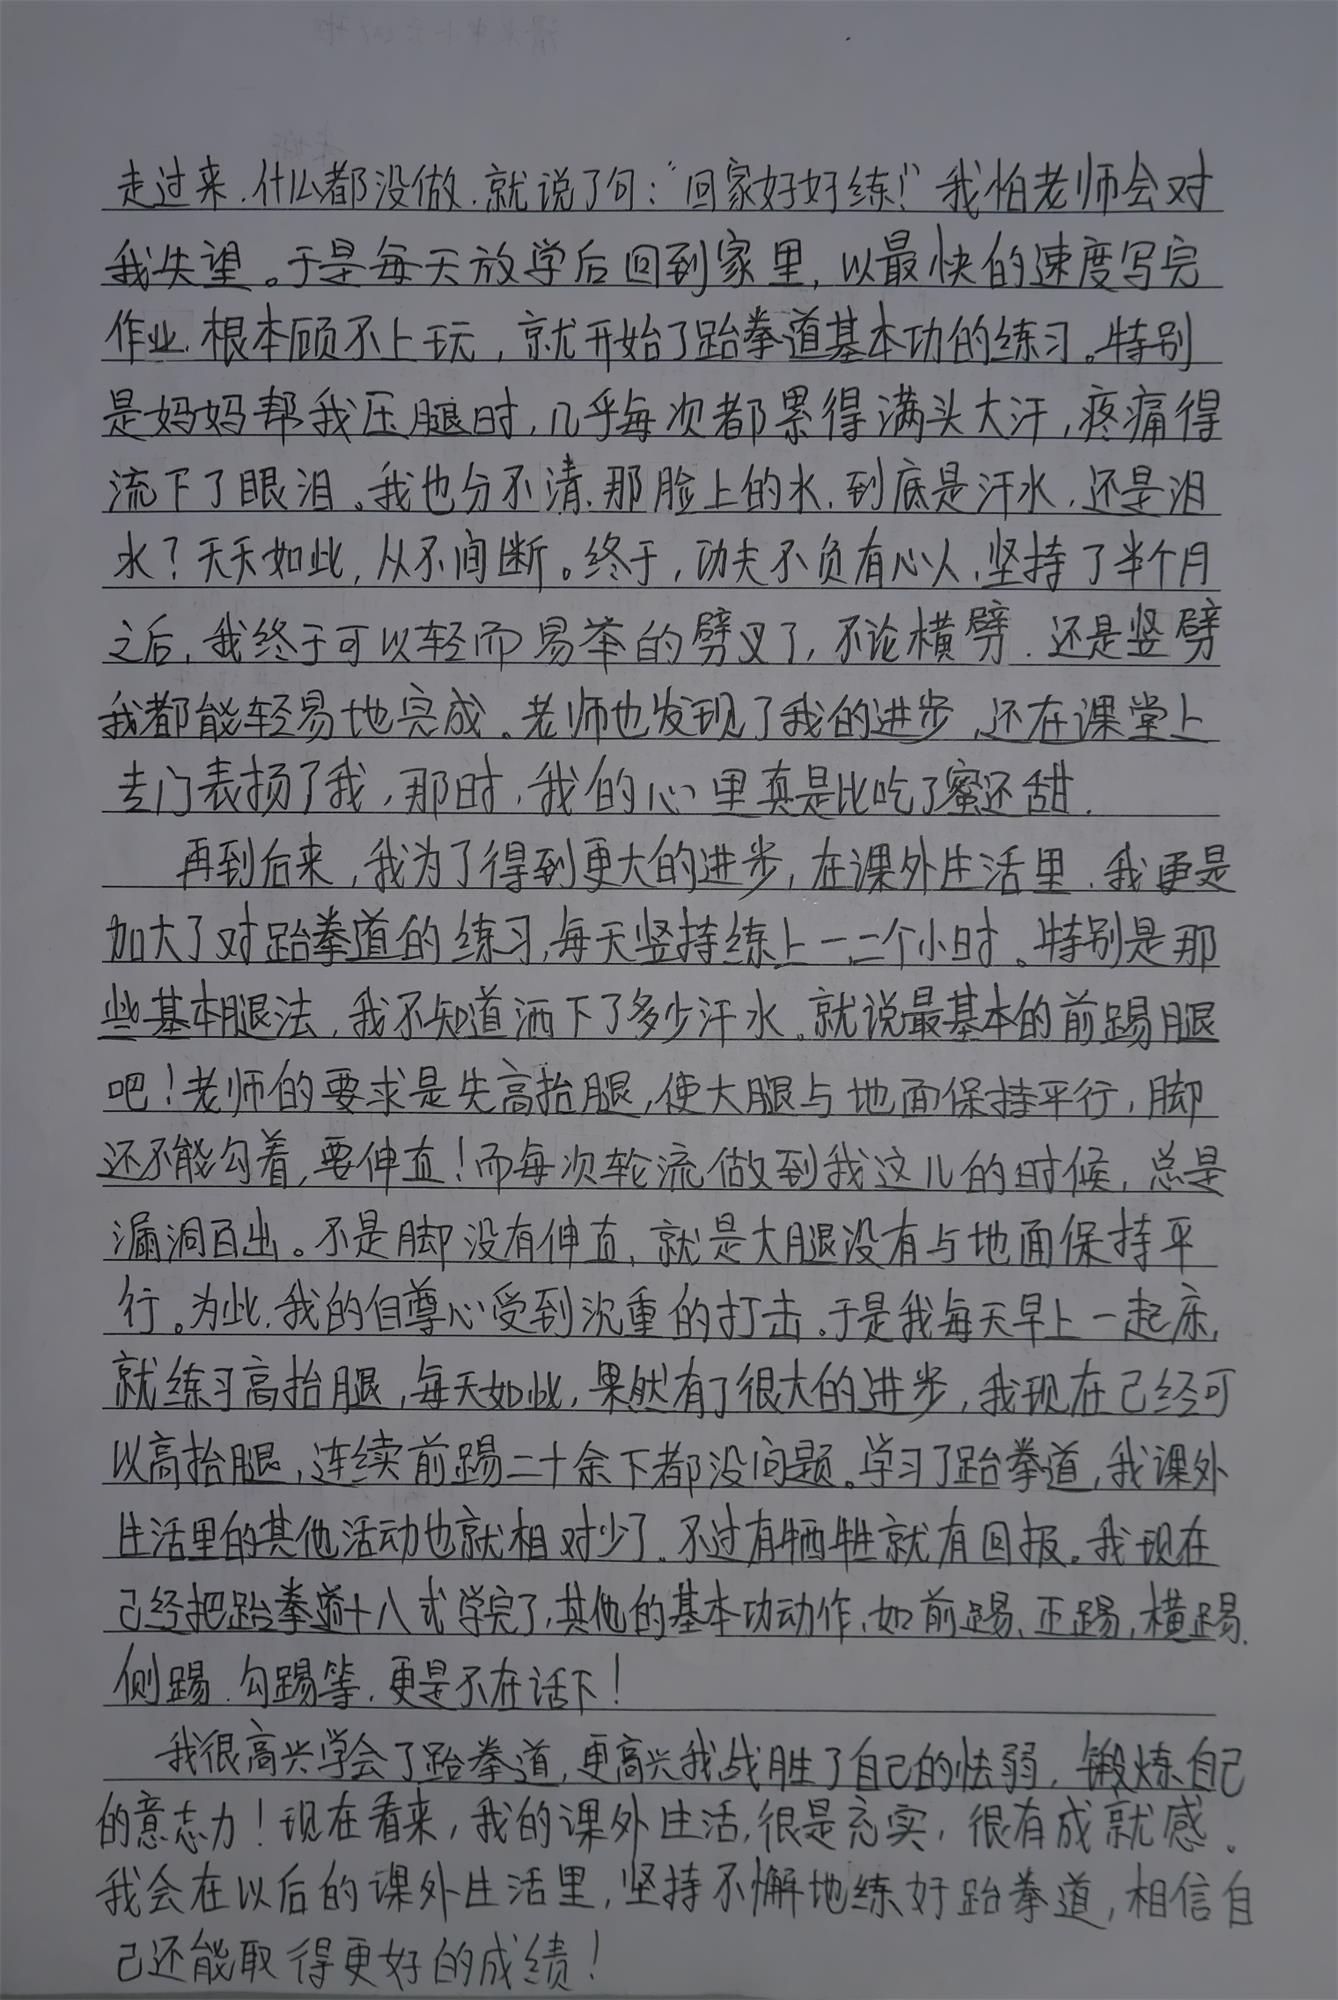 走过来,什么都没做,就说了句:“回家好好练!”我怕老师会对
我失望。于是每天放学后回到家里,以最快的速度写完
作业,根本顾不上玩,就开始了跆拳道基本功的练习。特别
是妈妈帮我压腿时,几乎每次都累得满头大汗,疼痛得
流下了眼泪。我也分不清,那脸上的水,到底是汗水,还是泪
水?天天如此,从不间断。终于,功夫不负有心人,坚持了半个月
之后,我终于可以轻而易举的劈叉了,不论横劈,还是竖劈
我都能轻易地完成。老师也发现了我的进步,还在课堂上
专门表扬了我,那时,我的心里真是比吃了蜜还甜.
再到后来,我为了得到更大的进步,在课外生活里,我更是
加大了对跆拳道的练习,每天坚持练上一、二个小时。特别是那
些基本腿法,我不知道洒下了多少汗水。就说最基本的前踢腿
吧!老师的要求是先高抬腿,使大腿与地面保持平行,脚
还不能勾着,要伸直!而每次轮流做到我这儿的时候,总是
漏洞百出。不是脚没有伸直,就是大腿没有与地面保持平
行。为此,我的自尊心受到沉重的打击。于是我每天早上一起床,
就练习高抬腿,每天如此,果然有了很大的进步,我现在已经可
以高抬腿,连续前踢二十余下都没问题。学习了跆拳道,我课外
生活里的其他活动也就相对少了。不过有牺牲就有回报。我现在
已经把跆拳道十八式学完了,其他的基本功动作,如前踢、正踢,横踢、
侧踢、勾踢等,更是不在话下!
我很高兴学会了跆拳道,更高兴我战胜了自己的怯弱,锻炼自己
的意志力!现在看来,我的课外生活,很是充实,很有成就感。
我会在以后的课外生活里,坚持不懈地练好跆拳道,相信自
己还能取得更好的成绩!